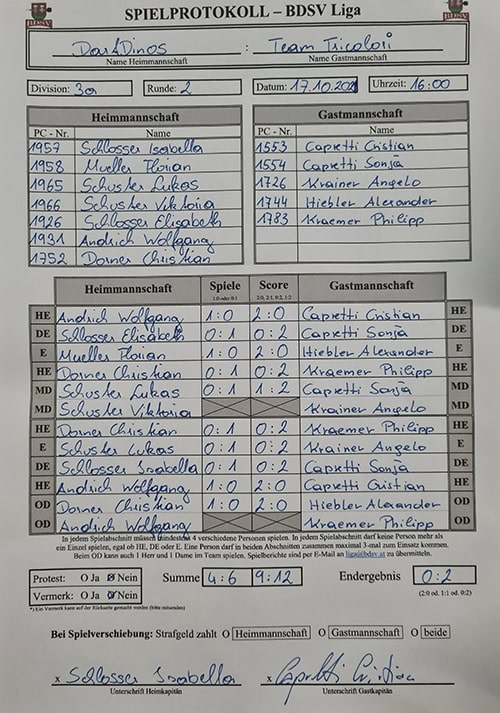 SPIELPROTOKOLL – BDSV Liga
Dart4Dinos : Team Tricolori
Name Heimmannschaft Name Gastmannschaft
Division: 3a Runde: 2 Datum: 17.10.2021 Uhrzeit: 16:00
Heimmannschaft Gastmannschaft
PC - Nr. Name PC - Nr. Name
1957 Schlosser Isabella 1553 Capretti Cristian
1958 Mueller Florian 1554 Capretti Sonja
1965 Schuster Lukas 1726 Krainer Angelo
1966 Schuster Viktoria 1744 Hiebler Alexander
1926 Schlosser Elisabeth 1783 Kraemer Philipp
1931 Andrich Wolfgang
1752 Dorner Christian
Heimmannschaft Spiele Score Gastmannschaft
1:0 oder 0:1 2:0, 2:1, 0:2, 1:2
HE Andrich Wolfgang 1:0 2:0 Capretti Cristian HE
DE Schlosser Elisabeth 0:1 0:2 Capretti Sonja DE
E Mueller Florian 1:0 2:0 Hiebler Alexander E
HE Dorner Christian 0:1 0:2 Kraemer Philipp HE
MD Schuster Lukas 0:1 1:2 Capretti Sonja MD
MD Schuster Viktoria Krainer Angelo MD
HE Dorner Christian 0:1 0:2 Kraemer Philipp HE
E Schuster Lukas 0:1 0:2 Krainer Angelo E
DE Schlosser Isabella 0:1 0:2 Capretti Sonja DE
HE Andrich Wolfgang 1:0 2:0 Capretti Cristian HE
OD Dorner Christian 1:0 2:0 Hiebler Alexander OD
OD Andrich Wolfgang Kraemer Philipp OD
In jedem Spielabschnitt müssen 4 verschiedene Personen spielen. In jedem Spielabschnitt darf keine Person mehr als
ein Einzel spielen, egal ob HE, DE oder E. Eine Person darf in beiden Abschnitten zusammen maximal 3-mal zum Einsatz kommen.
Beim OD kann auch 1 Herr und 1 Dame im Team spielen. Spielberichte sind per E-Mail an liga@bdsv.at zu übermitteln.
Protest: O Ja Ø Nein Summe 4:6 9:12 Endergebnis 0:2
Vermerk: O Ja Ø Nein (2:0 od. 1:1 od. 0:2)
*) Ein Vermerk kann auf der Rückseite gemacht werden (bitte mitsenden)
Bei Spielverschiebung: Strafgeld zahlt O Heimmannschaft O Gastmannschaft O beide
x Schlosser Isabella x Capretti Cristian
Unterschrift Heimkapitän Unterschrift Gastkapitän